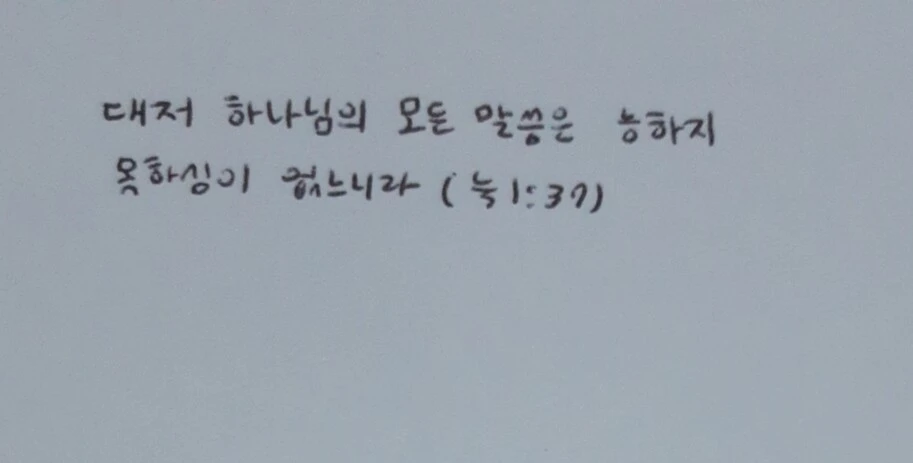 대저 하나님의 모든 말씀은 능하지
못하심이 없느니라 (눅 1:37)